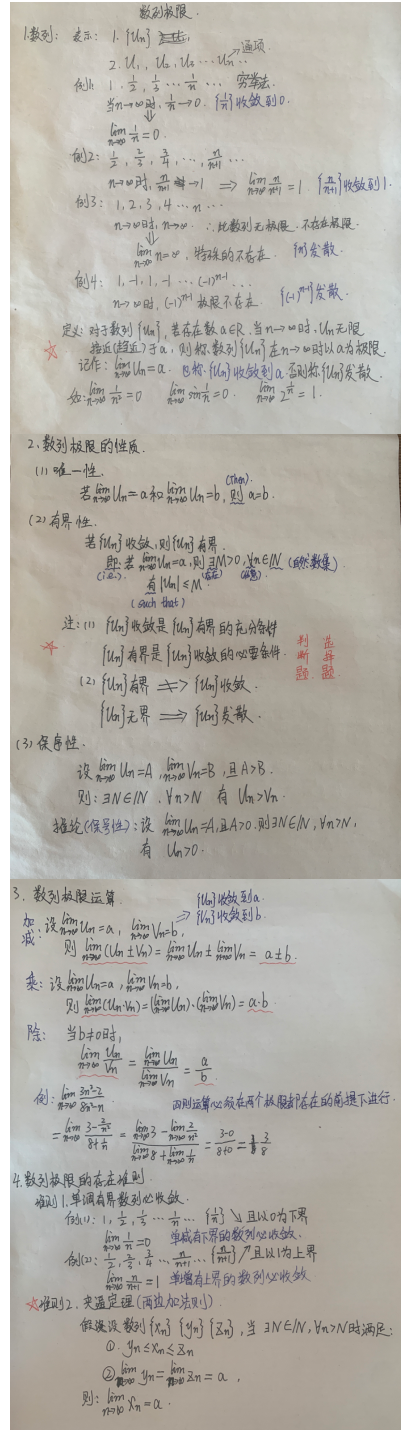 数列极限.
1.数列: 表示: 1. {Un}
2. U₁, U₂, U₃ ⋯ Un ⋯ →通项
例1: 1, 1/2, 1/3 ⋯ 1/n ⋯ 穷举法.
当n→∞时, 1/n→0. {1/n}收敛到0.
⇓
lim n→∞ 1/n = 0.
例2: 1/2, 2/3, 3/4, ⋯, n/(n+1) ⋯
n→∞时, n/(n+1) →1 ⟹ lim n→∞ n/(n+1) = 1. {n/(n+1)}收敛到1.
例3: 1, 2, 3, 4 ⋯ n ⋯
n→∞时, n→∞. ∴此数列无极限. 不存在极限.
⇓
lim n→∞ n=∞, 特殊的不存在. {n}发散.
例4: 1, -1, 1, -1 ⋯ (-1)ⁿ⁻¹ ⋯
n→∞时, (-1)ⁿ⁻¹ 极限不存在. {(-1)ⁿ⁻¹}发散.
定义: 对于数列{Un}, 若存在数a∈R, 当n→∞时, Un无限
☆ 接近(趋近)于a, 则称数列{Un}在n→∞时以a为极限.
记作: lim n→∞ Un=a. 也称{Un}收敛到a. 否则称{Un}发散.
如: lim n→∞ 1/n²=0 lim n→∞ sin 1/n=0. lim n→∞ 2^(1/n) = 1.
2. 数列极限的性质.
(1) 唯一性.
若lim n→∞ Un=a 和lim n→∞ Un=b, 则(then) a=b.
(2) 有界性.
若{Un}收敛, 则{Un}有界.
即: 若lim n→∞ Un=a, 则∃M>0, ∀n∈ℕ (自然数集)
(i.e.) (存在) (任意)
有|Un|≤M.
(such that)
注: (1) {Un}收敛是{Un}有界的充分条件
☆ {Un}有界是{Un}收敛的必要条件. 判断题. 选择题
(2) {Un}有界 ⇏ {Un}收敛.
{Un}无界 ⟹ {Un}发散.
(3) 保序性.
设 lim n→∞ Un=A, lim n→∞ Vn=B, 且A>B.
则: ∃N∈ℕ, ∀n>N 有 Un>Vn.
推论(保号性): 设 lim n→∞ Un=A, 且A>0. 则∃N∈ℕ, ∀n>N,
有 Un>0.
3. 数列极限运算. {Un}收敛到a.
加减: 设lim n→∞ Un=a, lim n→∞ Vn=b, ⇒ {Vn}收敛到b.
则 lim n→∞ (Un±Vn)= lim n→∞ Un ± lim n→∞ Vn = a±b.
乘: 设lim n→∞ Un=a, lim n→∞ Vn=b,
则 lim n→∞ (Un·Vn)=(lim n→∞ Un)·(lim n→∞ Vn)= a·b
除: 当b≠0时,
lim n→∞ Un/Vn = lim n→∞ Un / lim n→∞ Vn = a/b.
例: lim n→∞ (3n²-2)/(8n²-n) 四则运算必须在两个极限都存在的前提下进行.
= lim n→∞ (3-2/n²)/(8+1/n) = (lim n→∞ 3 - lim n→∞ 2/n²)/(lim n→∞ 8 + lim n→∞ 1/n) = (3-0)/(8+0) = 3/8
4. 数列极限的存在准则.
准则1. 单调有界数列必收敛.
例(1): 1, 1/2, 1/3 ⋯ 1/n ⋯ {1/n}↘且以0为下界
lim n→∞ 1/n=0 单减有下界的数列必收敛.
例(2): 1/2, 2/3, 3/4 ⋯ n/(n+1) ⋯ {n/(n+1)}↗且以1为上界
lim n→∞ n/(n+1) = 1 单增有上界的数列必收敛
☆准则2. 夹逼定理(两边加法则).
假设设数列{xn} {yn} {zn}, 当 ∃N∈ℕ, ∀n>N时满足:
①. yn≤xn≤zn
② lim n→∞ yn = lim n→∞ zn = a,
则: lim n→∞ xn = a.